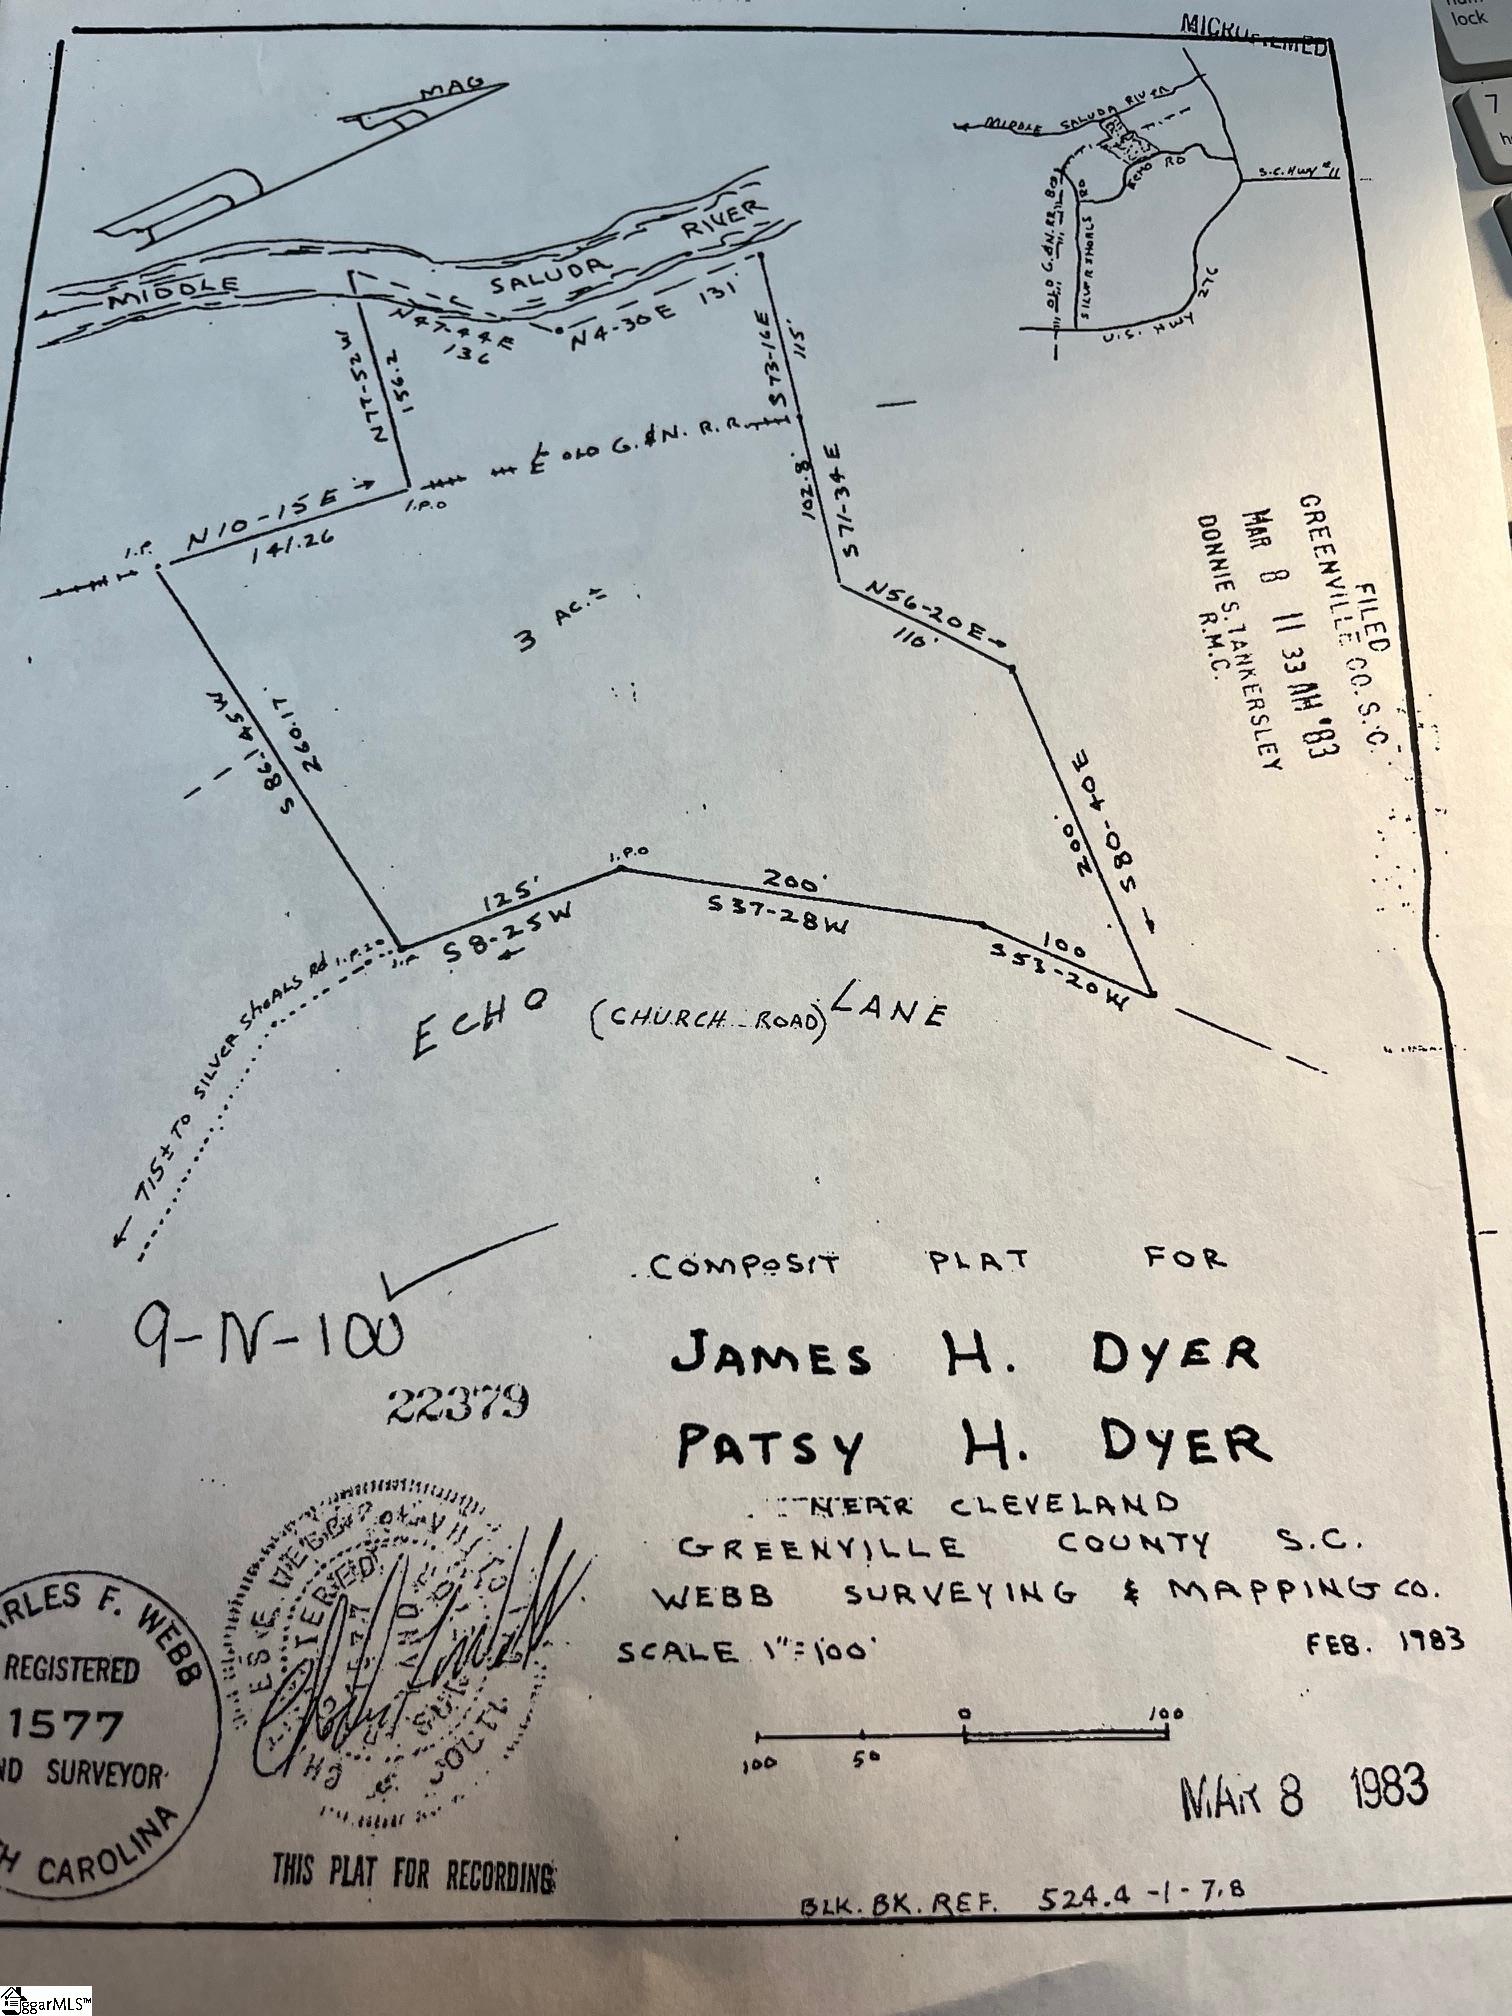 num
lock
7
MICROFILMED
MAG
MIDDLE SALUDA RIVER
ECHO RD
S.C. HWY #11
OLD G.&N. RR. BED
SILVER SHOALS RD
U.S. HWY 276
MIDDLE SALUDA RIVER
N47-44E
136
N4-30E 131'
N77-52W
156.2
S73-16E
115'
℄ OLD G.&N. R.R.
102.8'
S71-34E
N10-15E →
141.26
I.P.
I.P.O
N56-20E →
110'
3 AC.±
S86-145W
260.17'
S80-40E →
200'
I.P.O
125'
S8-25W
200'
S37-28W
100
S53-20W
I.P.
I.P.20
← 715± TO SILVER SHOALS Rd
ECHO (CHURCH ROAD) LANE
FILED
GREENVILLE CO. S.C.
MAR 8 11 33 AM '83
DONNIE S. TANKERSLEY
R.M.C.
9-N-100
22379
COMPOSIT PLAT FOR
JAMES H. DYER
PATSY H. DYER
NEAR CLEVELAND
GREENVILLE COUNTY S.C.
WEBB SURVEYING & MAPPING CO.
SCALE 1"=100'
FEB. 1983
0 100
100 50
MAR 8 1983
RLES F. WEBB
REGISTERED
1577
ND SURVEYOR
H CAROLINA
THIS PLAT FOR RECORDING
BLK. BK. REF. 524.4-1-7.8
ggarMLS™